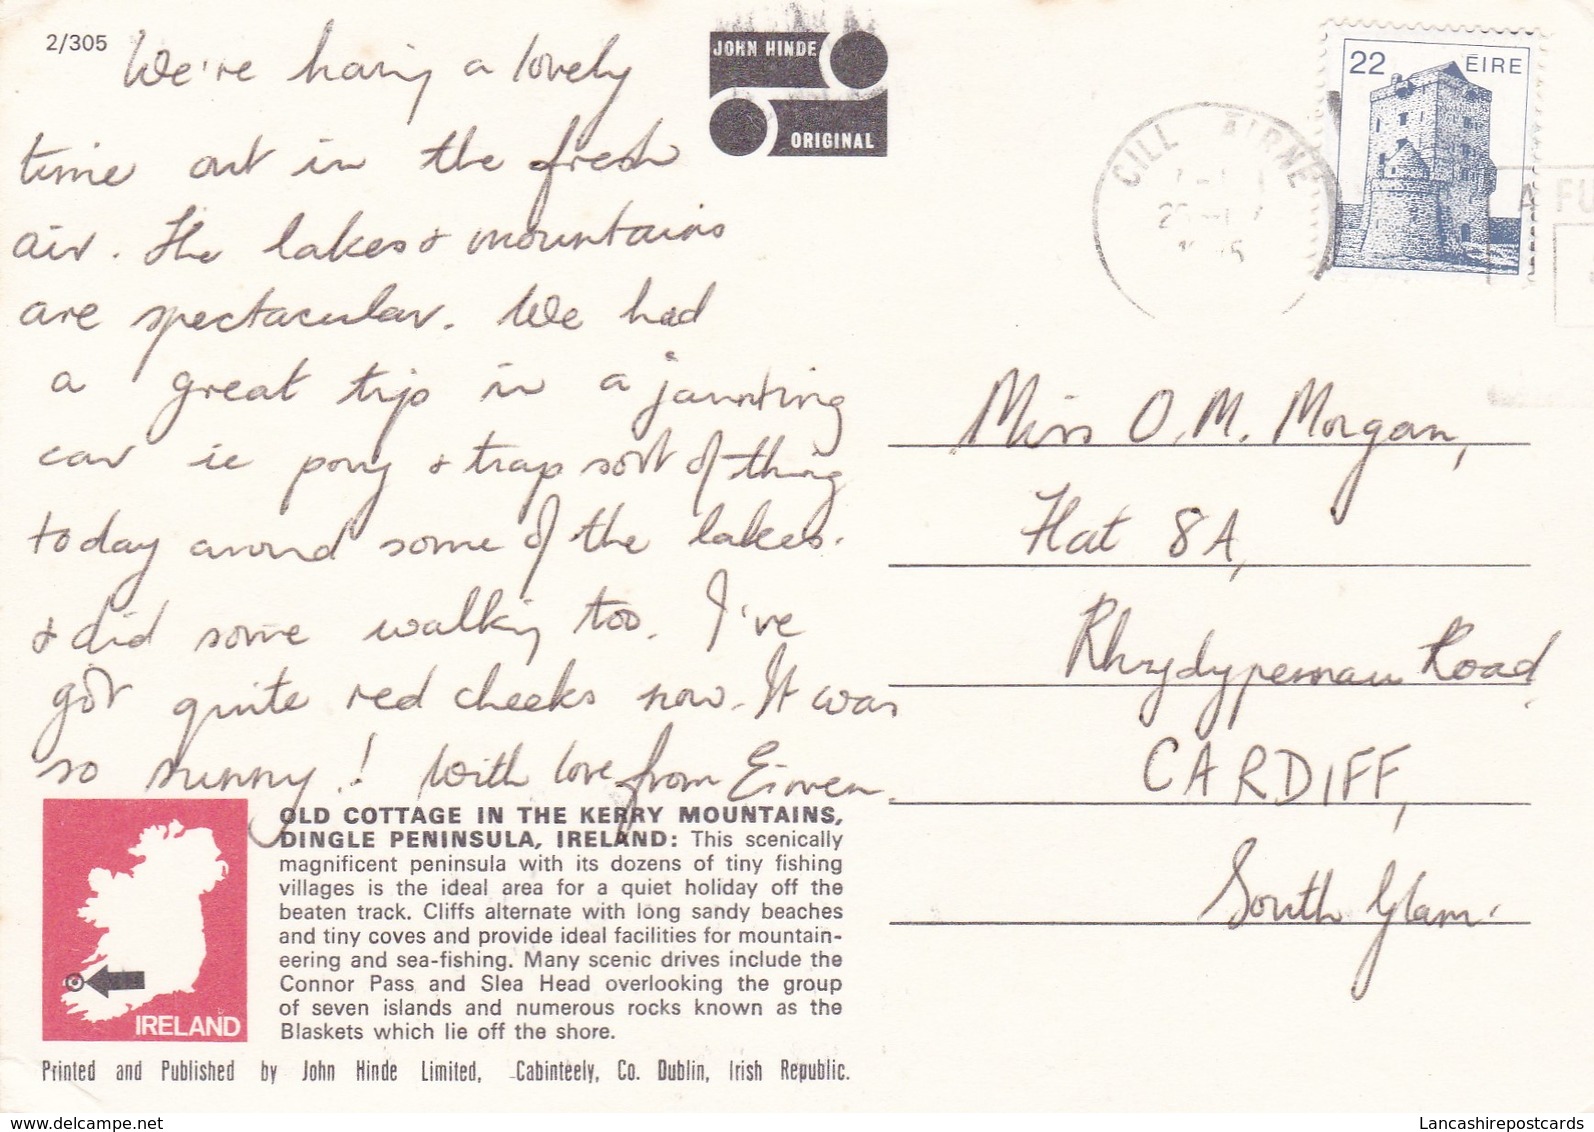 2/305
We're having a lovely
time out in the fresh
air. The lakes & mountains
are spectacular. We had
a great trip in a jaunting
car ie pony & trap sort of thing
today around some of the lakes.
& did some walking too. I've
got quite red cheeks now. It was
so sunny! With love from Eirwen.
JOHN HINDE
ORIGINAL
CILL AIRNE
22 EIRE
A FU
Miss O.M. Morgan,
Flat 8A,
Rhydypennau Road,
CARDIFF,
South Glam.
OLD COTTAGE IN THE KERRY MOUNTAINS,
DINGLE PENINSULA, IRELAND: This scenically
magnificent peninsula with its dozens of tiny fishing
villages is the ideal area for a quiet holiday off the
beaten track. Cliffs alternate with long sandy beaches
and tiny coves and provide ideal facilities for mountain-
eering and sea-fishing. Many scenic drives include the
Connor Pass and Slea Head overlooking the group
of seven islands and numerous rocks known as the
Blaskets which lie off the shore.
IRELAND
Printed and Published by John Hinde Limited, Cabinteely, Co. Dublin, Irish Republic.
www.delcampe.net
Lancashirepostcards